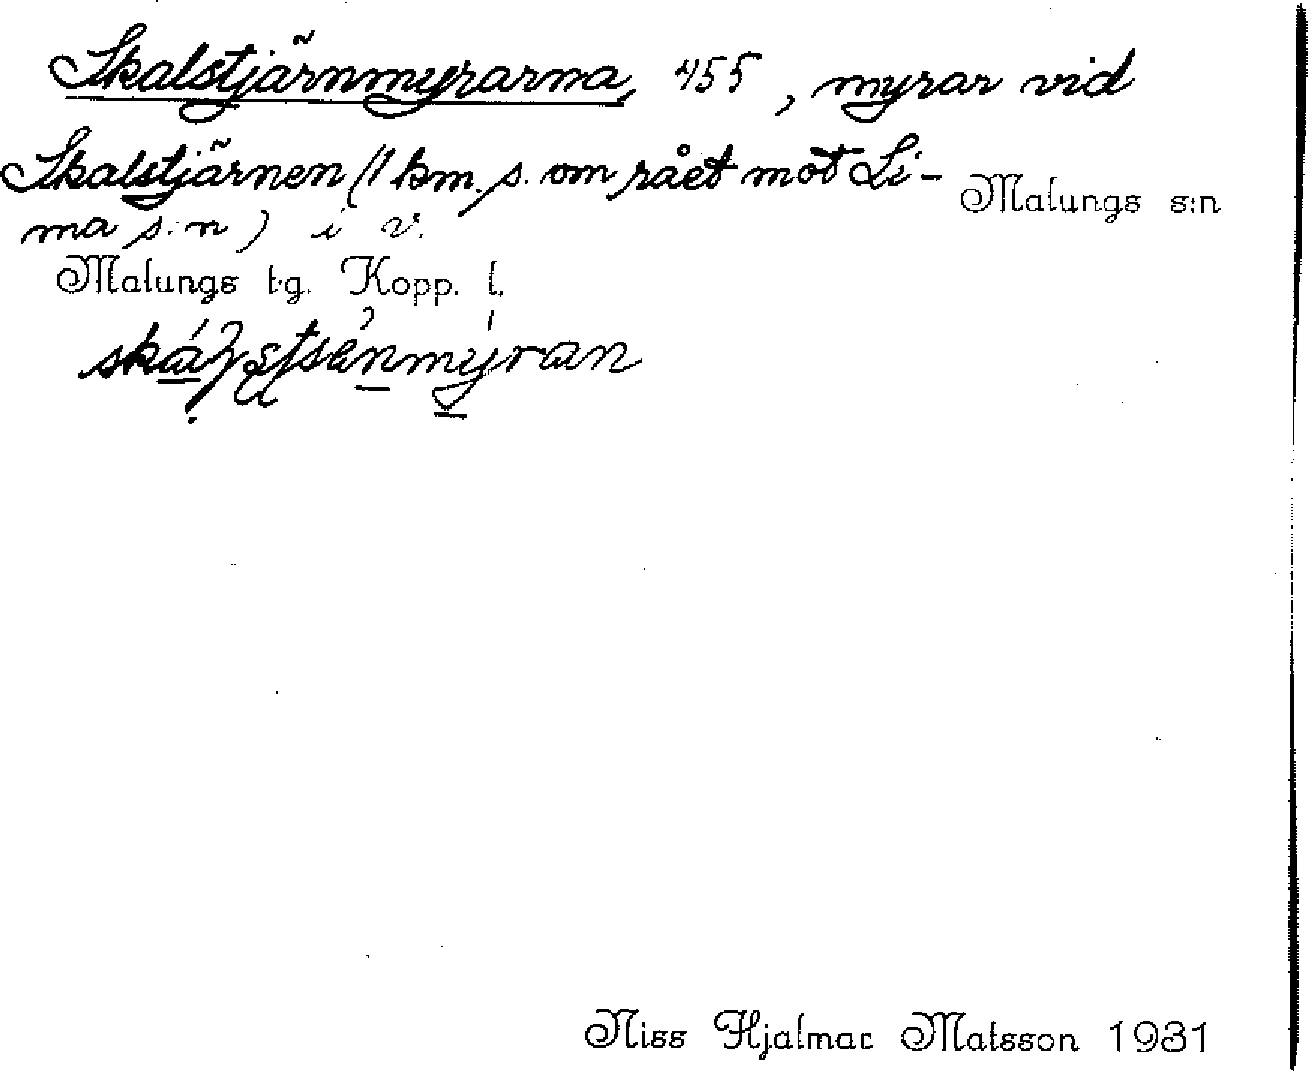 Skalstjärnmyrarna, 455, myrar vid
Skalstjärnen (1 km. s. om rået mot Li-
ma s:n) i v. Malungs s:n
Malungs tg. Kopp. l.
Niss Hjalmar Matsson 1931